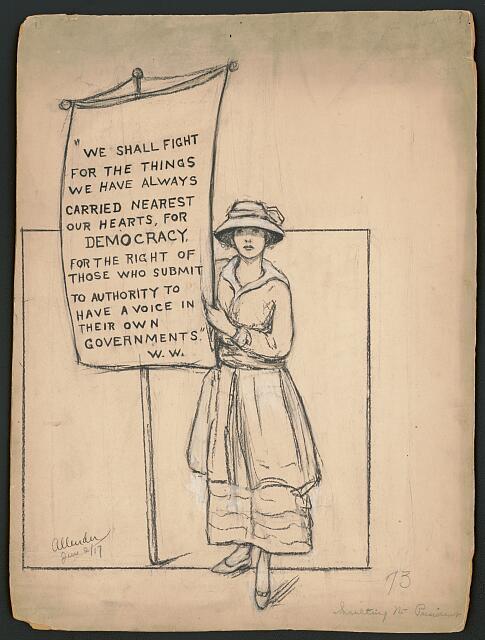 "WE SHALL FIGHT
FOR THE THINGS
WE HAVE ALWAYS
CARRIED NEAREST
OUR HEARTS, FOR
DEMOCRACY,
FOR THE RIGHT OF
THOSE WHO SUBMIT
TO AUTHORITY TO
HAVE A VOICE IN
THEIR OWN
GOVERNMENTS."
W.W.
Allender
73
Insulting the President